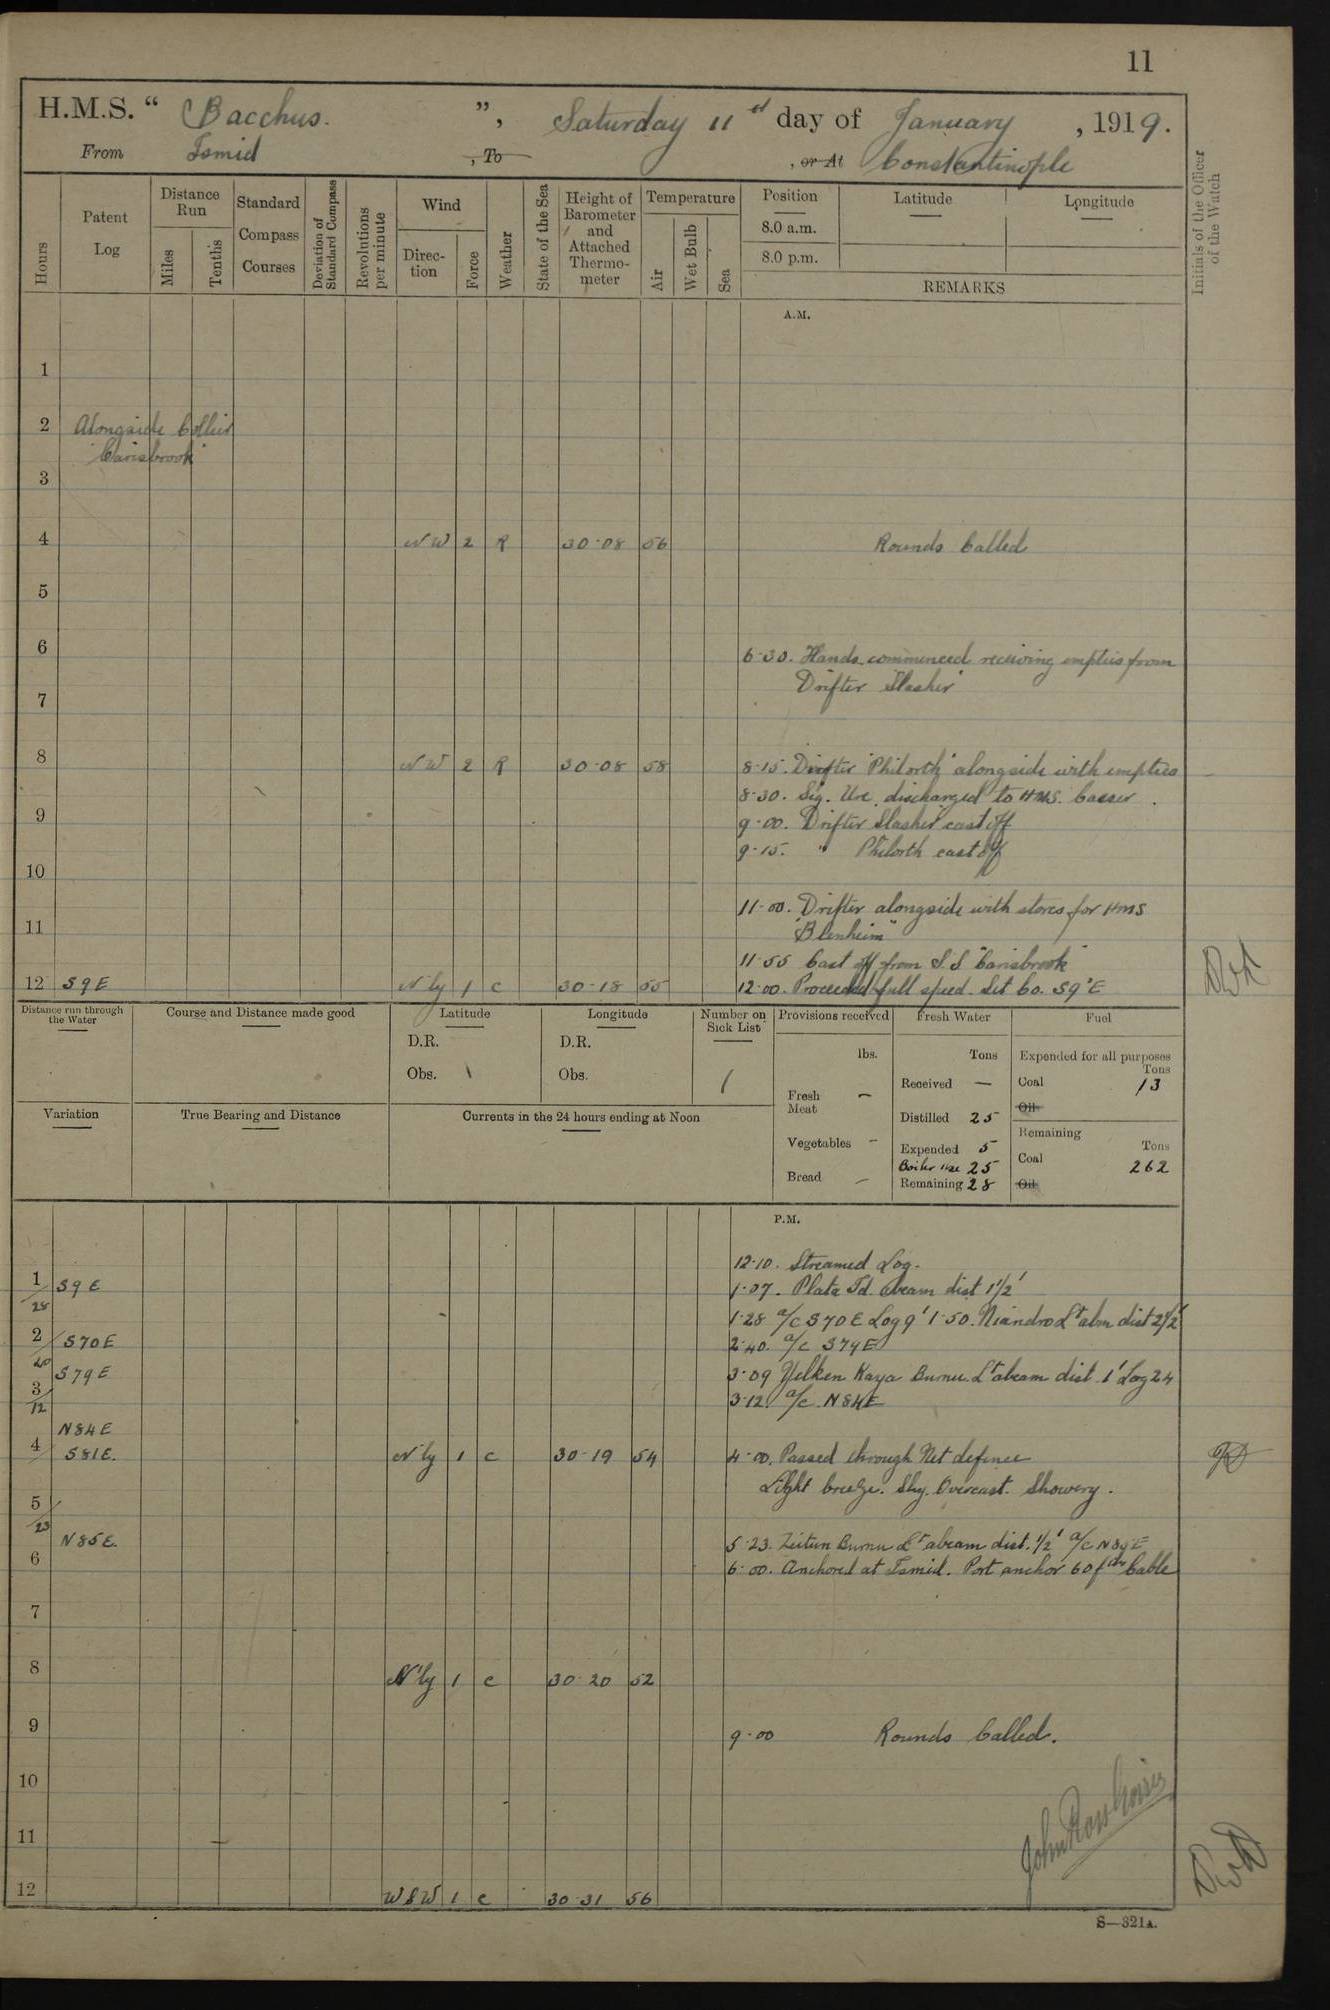 11
H.M.S. “ Bacchus. ”, Saturday 11th day of January, 1919.
From Ismid , To , or At Constantinople
Hours
Patent Log
Distance Run
Miles
Tenths
Standard Compass Courses
Deviation of Standard Compass
Revolutions per minute
Wind
Direction
Force
Weather
State of the Sea
Height of Barometer and Attached Thermometer
Temperature
Air
Wet Bulb
Sea
Position
8.0 a.m.
8.0 p.m.
Latitude
Longitude
REMARKS
Initials of the Officer of the Watch
A.M.
1
2 Alongside Collier
"Carisbrook"
3
4 NW 2 R 30·08 56 Rounds Called
5
6
6·30. Hands commenced receiving empties from
Drifter Slasher"
7
8 NW 2 R 30·08 58 8·15. Drifter "Philorth" alongside with empties
8·30. Sig. Ure discharged to HMS.
9
9·00. Drifter Slasher cast off
9·15. " Philorth cast off
10
11·00. Drifter alongside with stores for HMS
11
"Blenheim"
11·55 Cast off from S.S "Carisbrook"
12 S9E N'ly 1 c 30·18 55 12·00. Proceeded full speed. Set Co. S9°E
Distance run through the Water
Course and Distance made good
Latitude
D.R.
Obs.
Longitude
D.R.
Obs.
Number on Sick List
1
Provisions received
lbs.
Fresh Meat —
Vegetables –
Bread –
Fresh Water
Tons
Received —
Distilled 25
Expended 5
Boiler use 25
Remaining 28
Fuel
Expended for all purposes
Tons
Coal 13
Oil
Remaining
Tons
Coal 262
Oil
Variation
True Bearing and Distance
Currents in the 24 hours ending at Noon
P.M.
12·10. Streamed Log.
1 S9E 1·07. Plata Id. abeam dist 1½'
28 1·28 a/c S70E Log 9' 1·50. Niandro Lt abm dist 2½'
2 S70E 2·40. a/c S79E
20 S79E 3·09 Yelken Kaya Burnu Lt abeam dist. 1' Log 24
3
12 3·12. a/c N84E
N84E
4 S81E. N'ly 1 c 30·19 54 4·00. Passed through Net defence
Light breeze. Sky. Overcast. Showery.
5
23
N85E. 5·23. Zeitun Burnu Lt abeam dist. ½' a/c N89E
6 6·00. Anchored at Ismid. Port anchor 60 fms Cable
7
8 N'ly 1 c 30·20 52
9 9·00 Rounds Called.
10
11
12 WSW 1 c 30·31 56
S—321A.